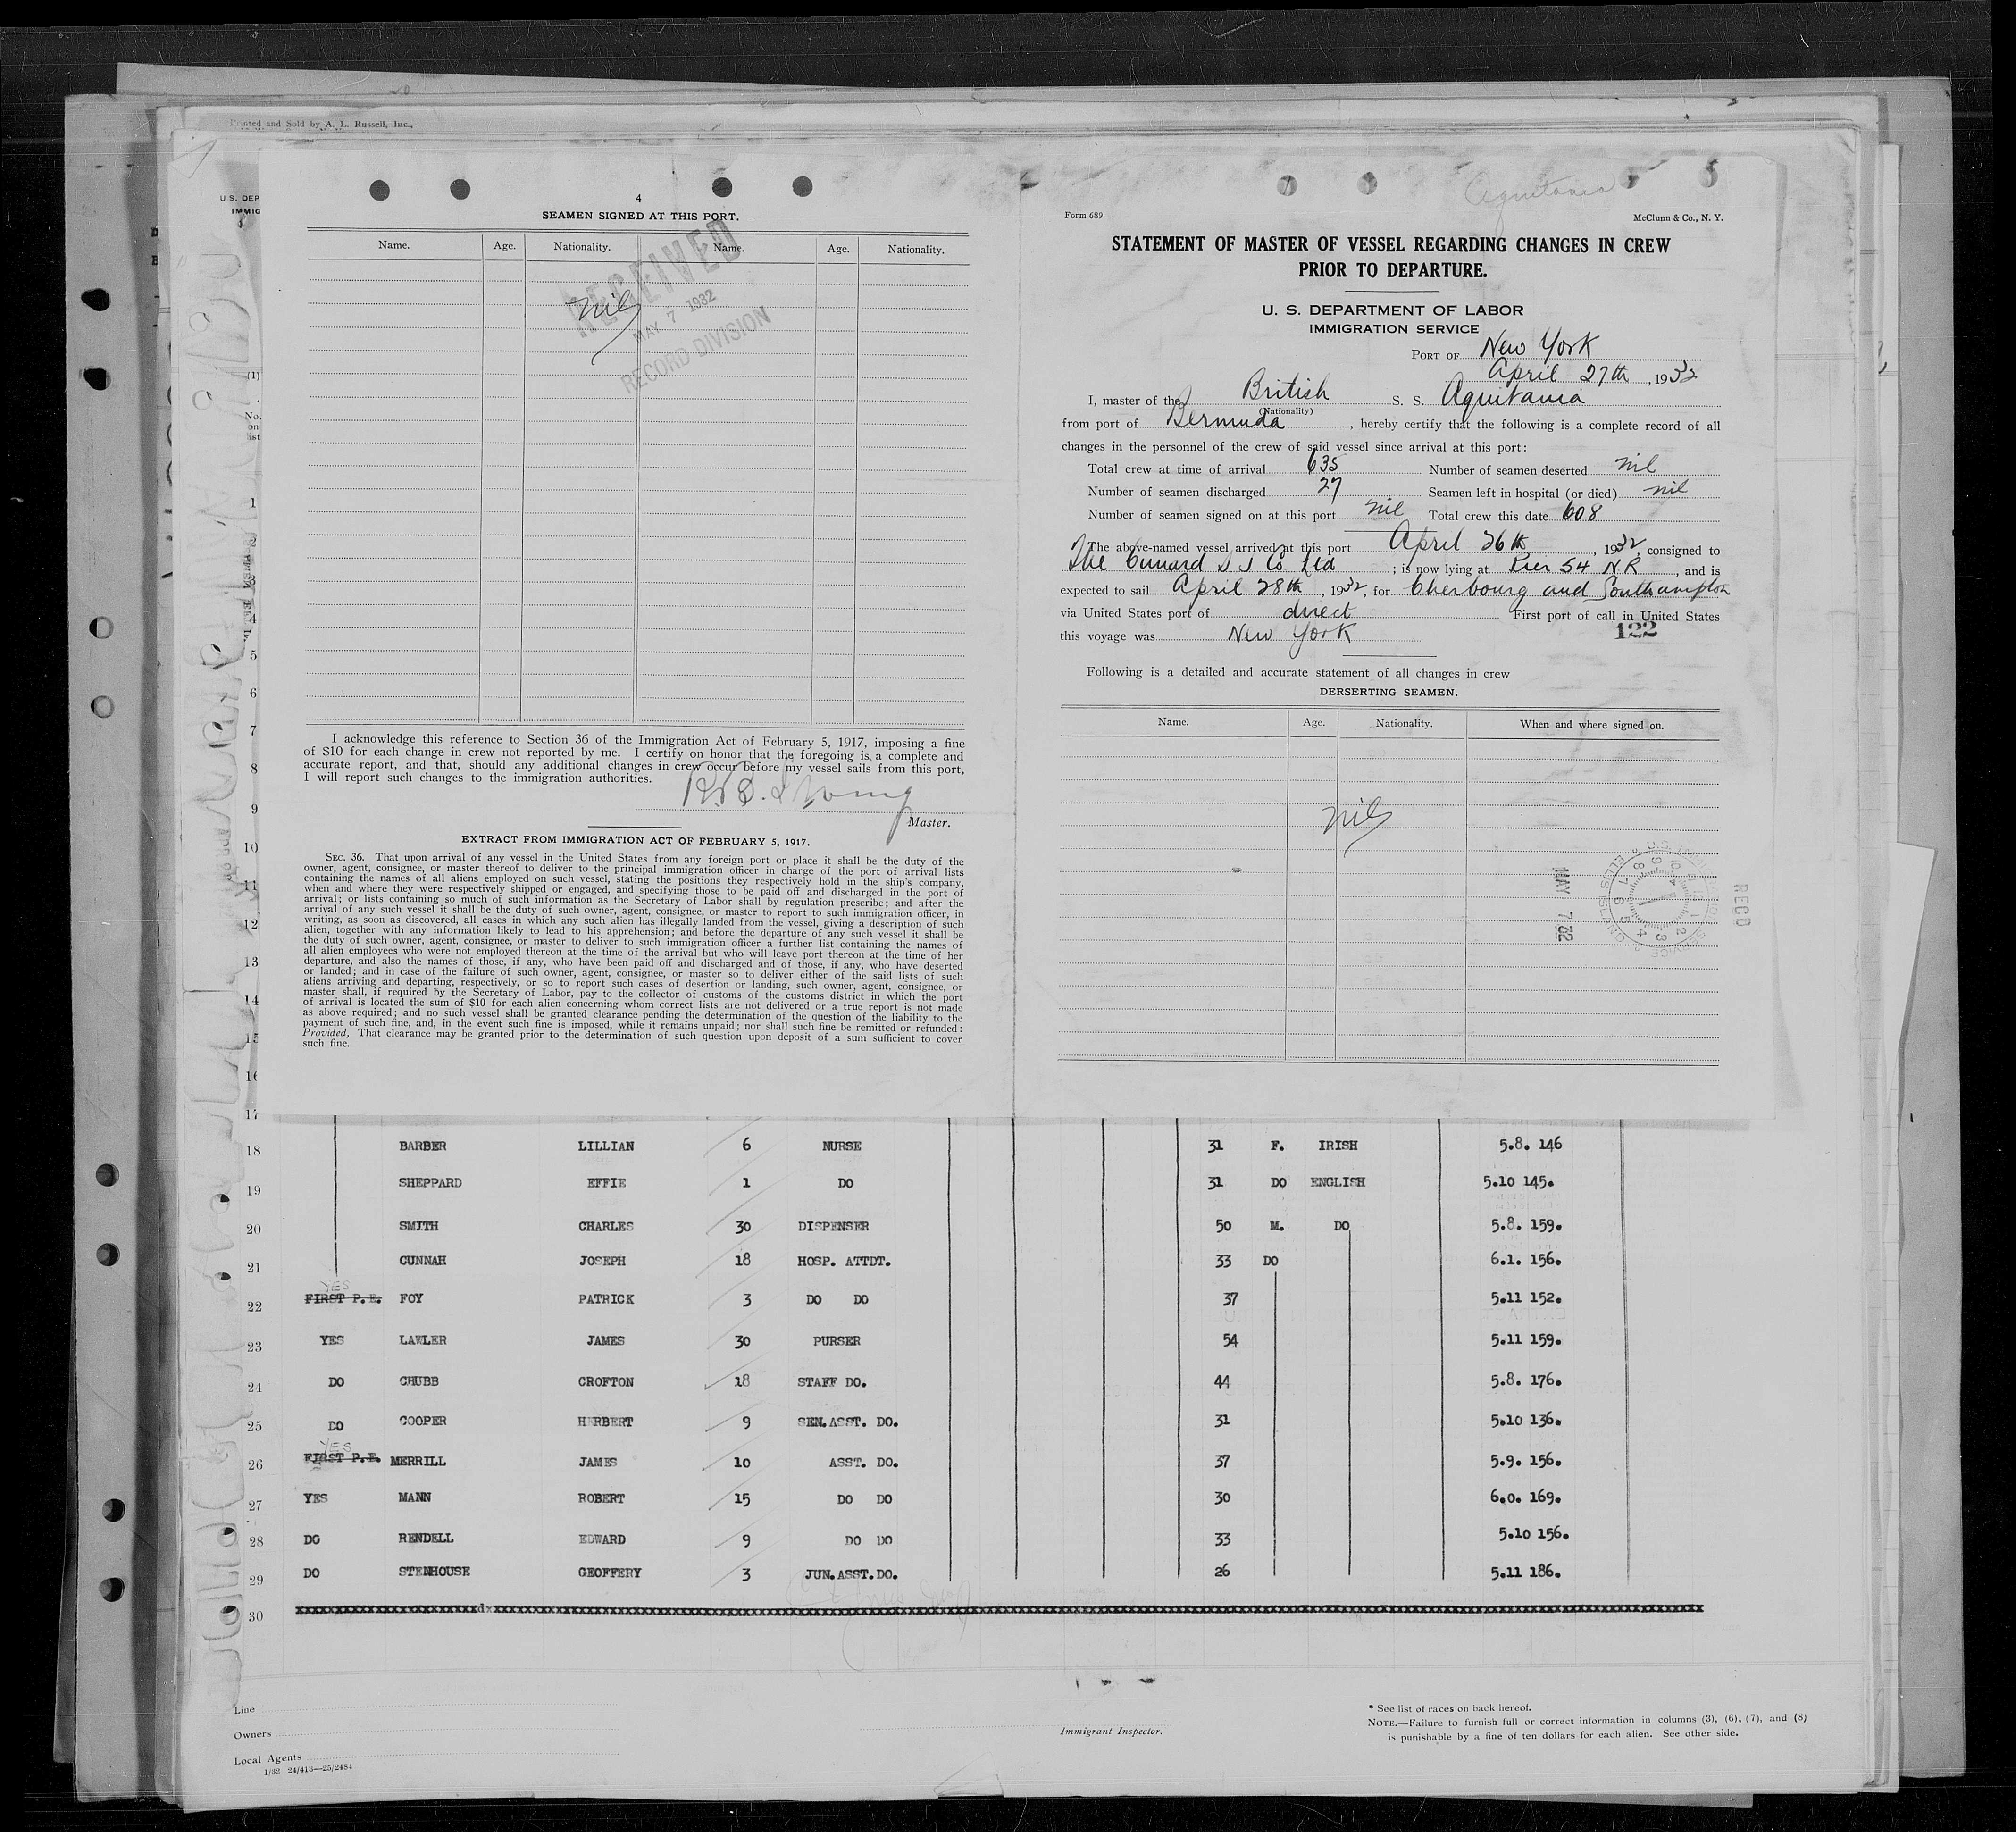 Printed and Sold by A. L. Russell, Inc.,
U.S. DEP
IMMIG
4
SEAMEN SIGNED AT THIS PORT.
Name. Age. Nationality. Name. Age. Nationality.
nil
RECEIVED
MAY 7 1932
RECORD DIVISION
I acknowledge this reference to Section 36 of the Immigration Act of February 5, 1917, imposing a fine
of $10 for each change in crew not reported by me. I certify on honor that the foregoing is a complete and
accurate report, and that, should any additional changes in crew occur before my vessel sails from this port,
I will report such changes to the immigration authorities.
Master.
EXTRACT FROM IMMIGRATION ACT OF FEBRUARY 5, 1917.
SEC. 36. That upon arrival of any vessel in the United States from any foreign port or place it shall be the duty of the
owner, agent, consignee, or master thereof to deliver to the principal immigration officer in charge of the port of arrival lists
containing the names of all aliens employed on such vessel, stating the positions they respectively hold in the ship's company,
when and where they were respectively shipped or engaged, and specifying those to be paid off and discharged in the port of
arrival; or lists containing so much of such information as the Secretary of Labor shall by regulation prescribe; and after the
arrival of any such vessel it shall be the duty of such owner, agent, consignee, or master to report to such immigration officer, in
writing, as soon as discovered, all cases in which any such alien has illegally landed from the vessel, giving a description of such
alien, together with any information likely to lead to his apprehension; and before the departure of any such vessel it shall be
the duty of such owner, agent, consignee, or master to deliver to such immigration officer a further list containing the names of
all alien employees who were not employed thereon at the time of the arrival but who will leave port thereon at the time of her
departure, and also the names of those, if any, who have been paid off and discharged and of those, if any, who have deserted
or landed; and in case of the failure of such owner, agent, consignee, or master so to deliver either of the said lists of such
aliens arriving and departing, respectively, or so to report such cases of desertion or landing, such owner, agent, consignee, or
master shall, if required by the Secretary of Labor, pay to the collector of customs of the customs district in which the port
of arrival is located the sum of $10 for each alien concerning whom correct lists are not delivered or a true report is not made
as above required; and no such vessel shall be granted clearance pending the determination of the question of the liability to the
payment of such fine, and, in the event such fine is imposed, while it remains unpaid; nor shall such fine be remitted or refunded:
Provided, That clearance may be granted prior to the determination of such question upon deposit of a sum sufficient to cover
such fine.
Aquitania
Form 689 McClunn & Co., N. Y.
STATEMENT OF MASTER OF VESSEL REGARDING CHANGES IN CREW
PRIOR TO DEPARTURE.
U. S. DEPARTMENT OF LABOR
IMMIGRATION SERVICE
PORT OF New York
April 27th, 1932
I, master of the British S. S. Aquitania
(Nationality)
from port of Bermuda, hereby certify that the following is a complete record of all
changes in the personnel of the crew of said vessel since arrival at this port:
Total crew at time of arrival 635 Number of seamen deserted nil
Number of seamen discharged 27 Seamen left in hospital (or died) nil
Number of seamen signed on at this port nil Total crew this date 608
The above-named vessel arrived at this port April 26th, 1932, consigned to
The Cunard S S Co Ltd; is now lying at Pier 54 NR, and is
expected to sail April 28th, 1932, for Cherbourg and Southampton
via United States port of direct First port of call in United States
this voyage was New York 122
Following is a detailed and accurate statement of all changes in crew
DERSERTING SEAMEN.
Name. Age. Nationality. When and where signed on.
nil
MAY 7 32
RECD
(1)
No.
on
list
1
2
3
4
5
6
7
8
9
10
11
12
13
14
15
16
17
18 BARBER LILLIAN 6 NURSE 31 F. IRISH 5.8. 146
19 SHEPPARD EFFIE 1 DO 31 DO ENGLISH 5.10 145.
20 SMITH CHARLES 30 DISPENSER 50 M. DO 5.8. 159.
21 CUNNAH JOSEPH 18 HOSP. ATTDT. 33 DO 6.1. 156.
YES
22 FIRST P.E. FOY PATRICK 3 DO DO 37 5.11 152.
23 YES LAWLER JAMES 30 PURSER 54 5.11 159.
24 DO CHUBB CROFTON 18 STAFF DO. 44 5.8. 176.
25 DO COOPER HERBERT 9 SEN.ASST. DO. 31 5.10 136.
YES
26 FIRST P.E. MERRILL JAMES 10 ASST. DO. 37 5.9. 156.
27 YES MANN ROBERT 15 DO DO 30 6.0. 169.
28 DO RENDELL EDWARD 9 DO DO 33 5.10 156.
29 DO STENHOUSE GEOFFERY 3 JUN.ASST.DO. 26 5.11 186.
30
Line
Owners
Local Agents
1/32 24/413—25/2484
Immigrant Inspector.
* See list of races on back hereof.
NOTE.—Failure to furnish full or correct information in columns (3), (6), (7), and (8)
is punishable by a fine of ten dollars for each alien. See other side.